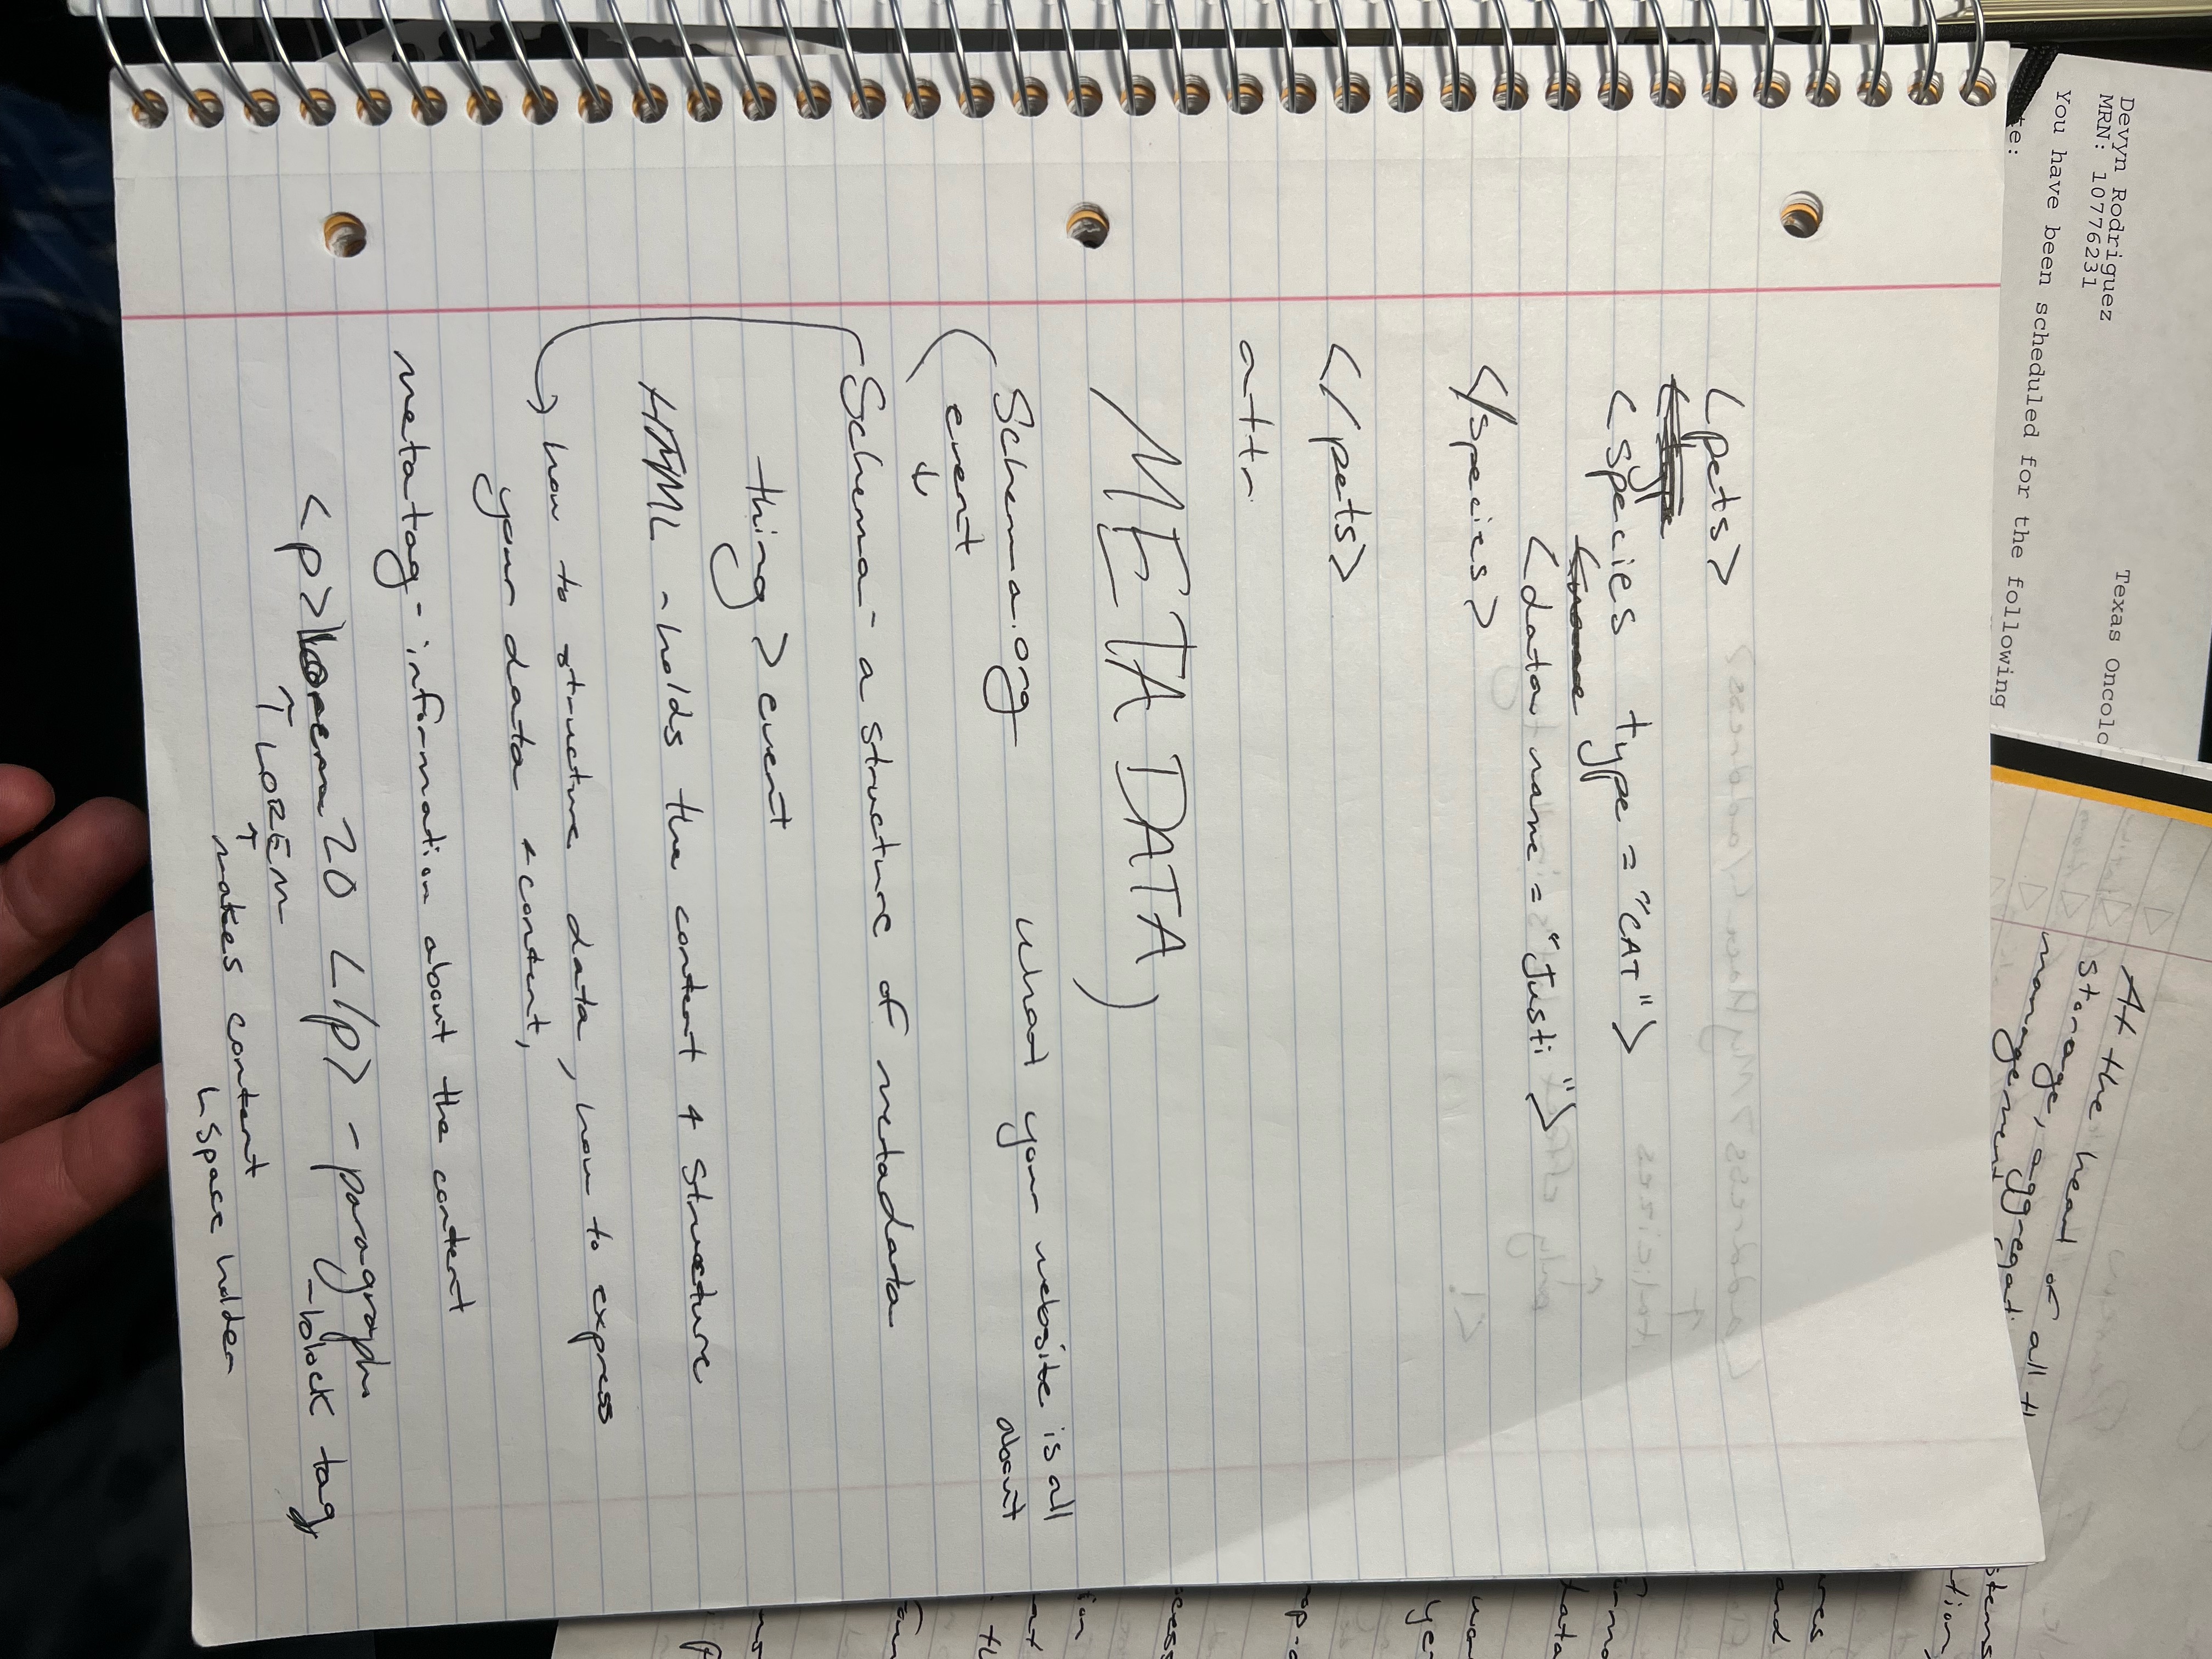 <pets>
<species type = "CAT">
<data name = "Justi">
</species>
</pets>
attr
META DATA)
Schema.org what your website is all
about
event
↓
Schema - a structure of metadata
thing > event
HTML - holds the content + structure
→ how to structure data, how to express
your data + content,
metatag - information about the content
<p>lorem20 </p> - paragraph
- block tag
↑ LOREM
↑ makes content
↳ Space holder
Devyn Rodriguez
MRN: 10776231
Texas Oncolo
You have been scheduled for the following
te:
At the heart of all
storage,
manage, aggregat
management,